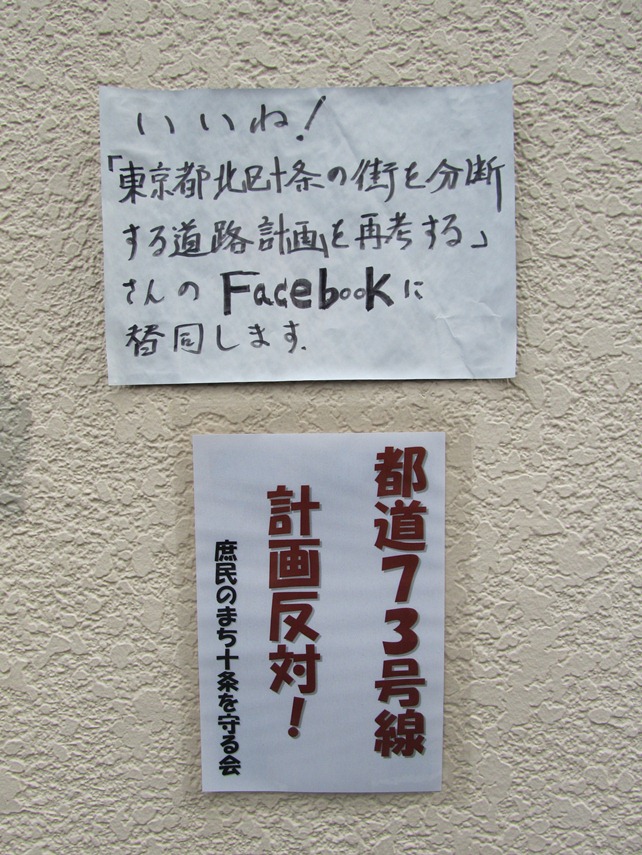 いいね!
「東京都北区十条の街を分断
する道路計画」を再考する」
さんのFacebookに
賛同します.
都道73号線
計画反対!
庶民のまち十条を守る会